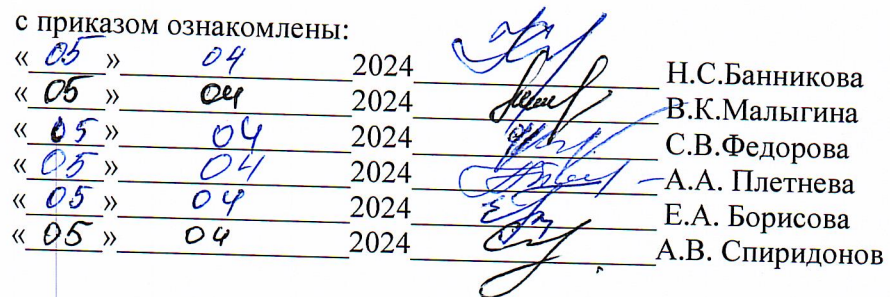 с приказом ознакомлены:
« 05 » 04 2024 Н.С.Банникова
« 05 » 04 2024 В.К.Малыгина
« 05 » 04 2024 С.В.Федорова
« 05 » 04 2024 А.А. Плетнева
« 05 » 04 2024 Е.А. Борисова
« 05 » 04 2024 А.В. Спиридонов